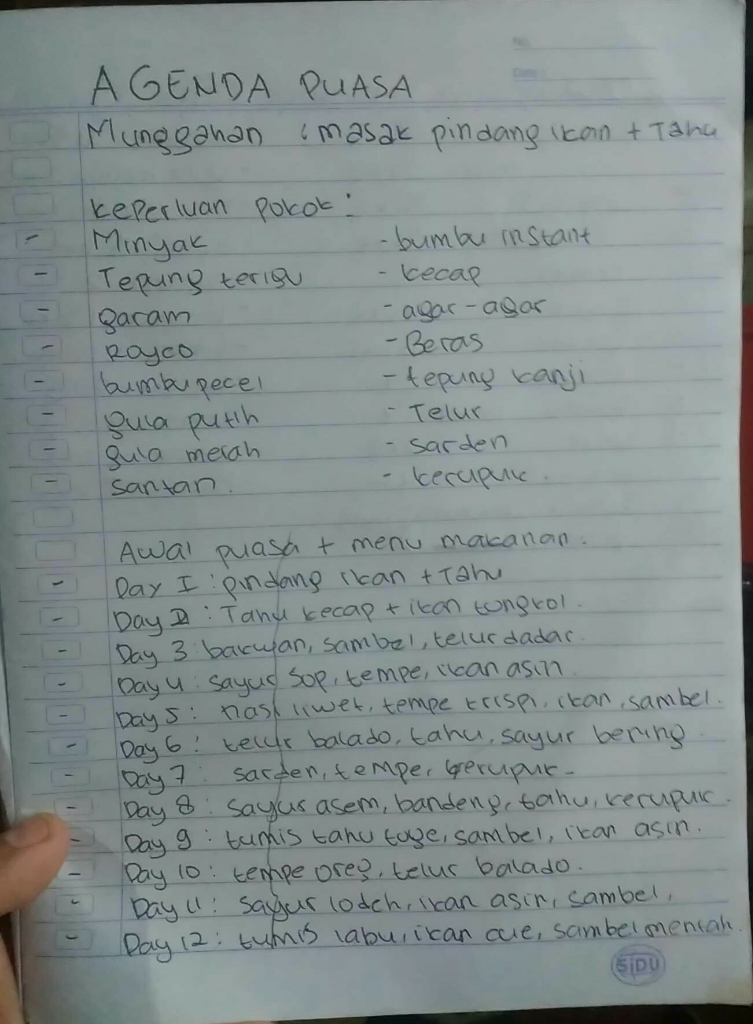 No:
Date:
AGENDA PUASA
Munggahan : masak pindang ikan + Tahu
keperluan pokok :
- Minyak - bumbu instant
- Tepung terigu - kecap
- garam - agar-agar
- Royco - Beras
- bumbu pecel - tepung kanji
- gula putih - Telur
- gula merah - sarden
- santan. - kerupuk.
Awal puasa + menu makanan.
- Day I : pindang ikan + Tahu
- Day II : Tahu kecap + ikan tongkol.
- Day 3 : bakwan, sambel, telur dadar.
- Day 4 : sayur sop, tempe, ikan asin
- Day 5 : nasi liwet, tempe krispi, ikan, sambel.
- Day 6 : telur balado, tahu, sayur bening
- Day 7 : sarden, tempe, kerupuk -
- Day 8 : sayur asem, bandeng, tahu, kerupuk.
- Day 9 : tumis tahu toge, sambel, ikan asin.
- Day 10 : tempe oreg, telur balado.
- Day 11 : sayur lodeh, ikan asin, sambel,
- Day 12 : tumis labu, ikan cue, sambel mentah.
SiDU